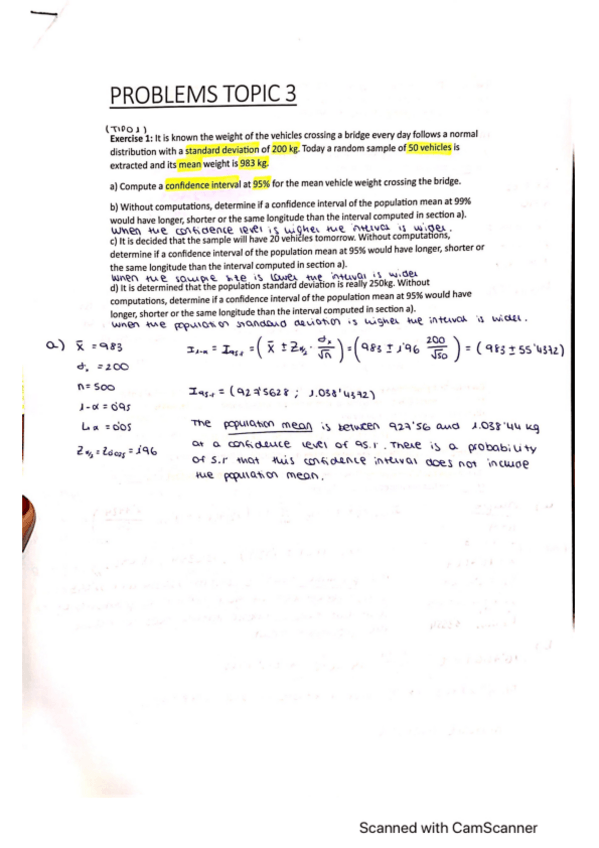 PROBLEMS TOPIC 3
(TIPO 1)
Exercise 1: It is known the weight of the vehicles crossing a bridge every day follows a normal
distribution with a standard deviation of 200 kg. Today a random sample of 50 vehicles is
extracted and its mean weight is 983 kg.
a) Compute a confidence interval at 95% for the mean vehicle weight crossing the bridge.
b) Without computations, determine if a confidence interval of the population mean at 99%
would have longer, shorter or the same longitude than the interval computed in section a).
When the confidence level is higher the interval is wider.
c) It is decided that the sample will have 20 vehicles tomorrow. Without computations,
determine if a confidence interval of the population mean at 95% would have longer, shorter or
the same longitude than the interval computed in section a).
When the sample size is lower the interval is wider
d) It is determined that the population standard deviation is really 250kg. Without
computations, determine if a confidence interval of the population mean at 95% would have
longer, shorter or the same longitude than the interval computed in section a).
When the population standard deviation is higher the interval is wider.
a) x̄ = 983 I₁₋α = I₉₅.₁ = ( x̄ ± Zα/₂ · σₓ/√n ) = ( 983 ± 1'96 200/√50 ) = ( 983 ± 55'4372 )
σₓ = 200
n = 500 I₉₅.₁ = ( 927'5628 ; 1.038'4372 )
1-α = 0'95
↳ α = 0'05 The population mean is between 927'56 and 1.038'44 kg
at a confidence level of 95.1. There is a probability
Zα/₂ = Z₀'₀₂₅ = 1'96
of 5.1 that this confidence interval does not include
the population mean.
Scanned with CamScanner